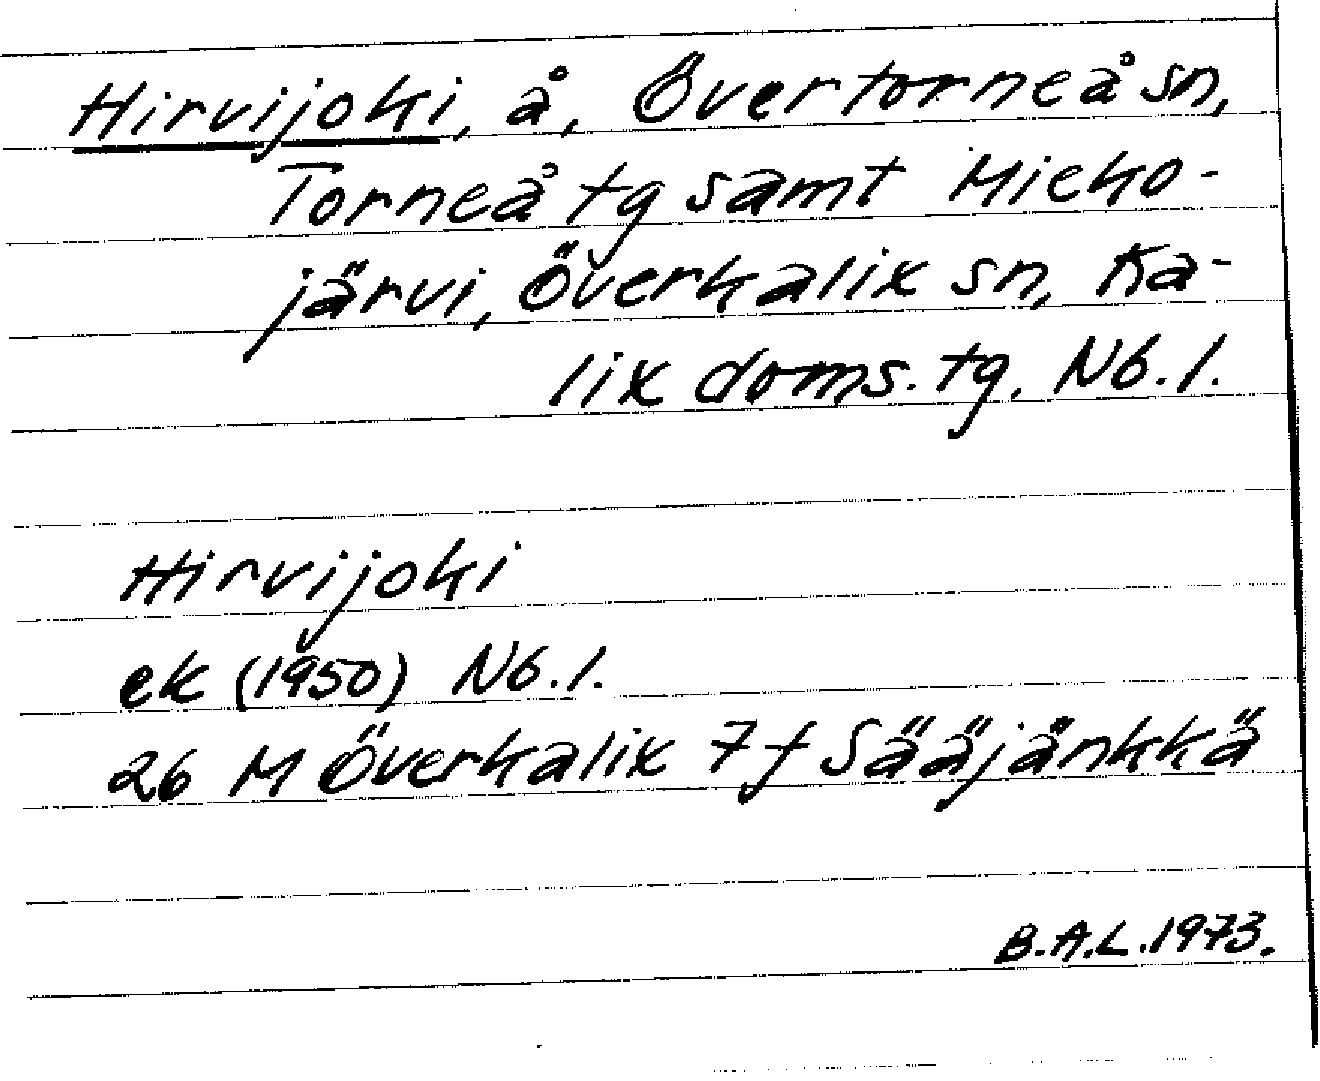 Hirvijoki, å, Övertorneå sn,
Torneå tg samt Mieko-
järvi, Överkalix sn, Ka-
lix doms. tg, Nb. l.
Hirvijoki
ek (1950) Nb. l.
26 M Överkalix 7 f Sääjänkkä
B.A.L. 1973.